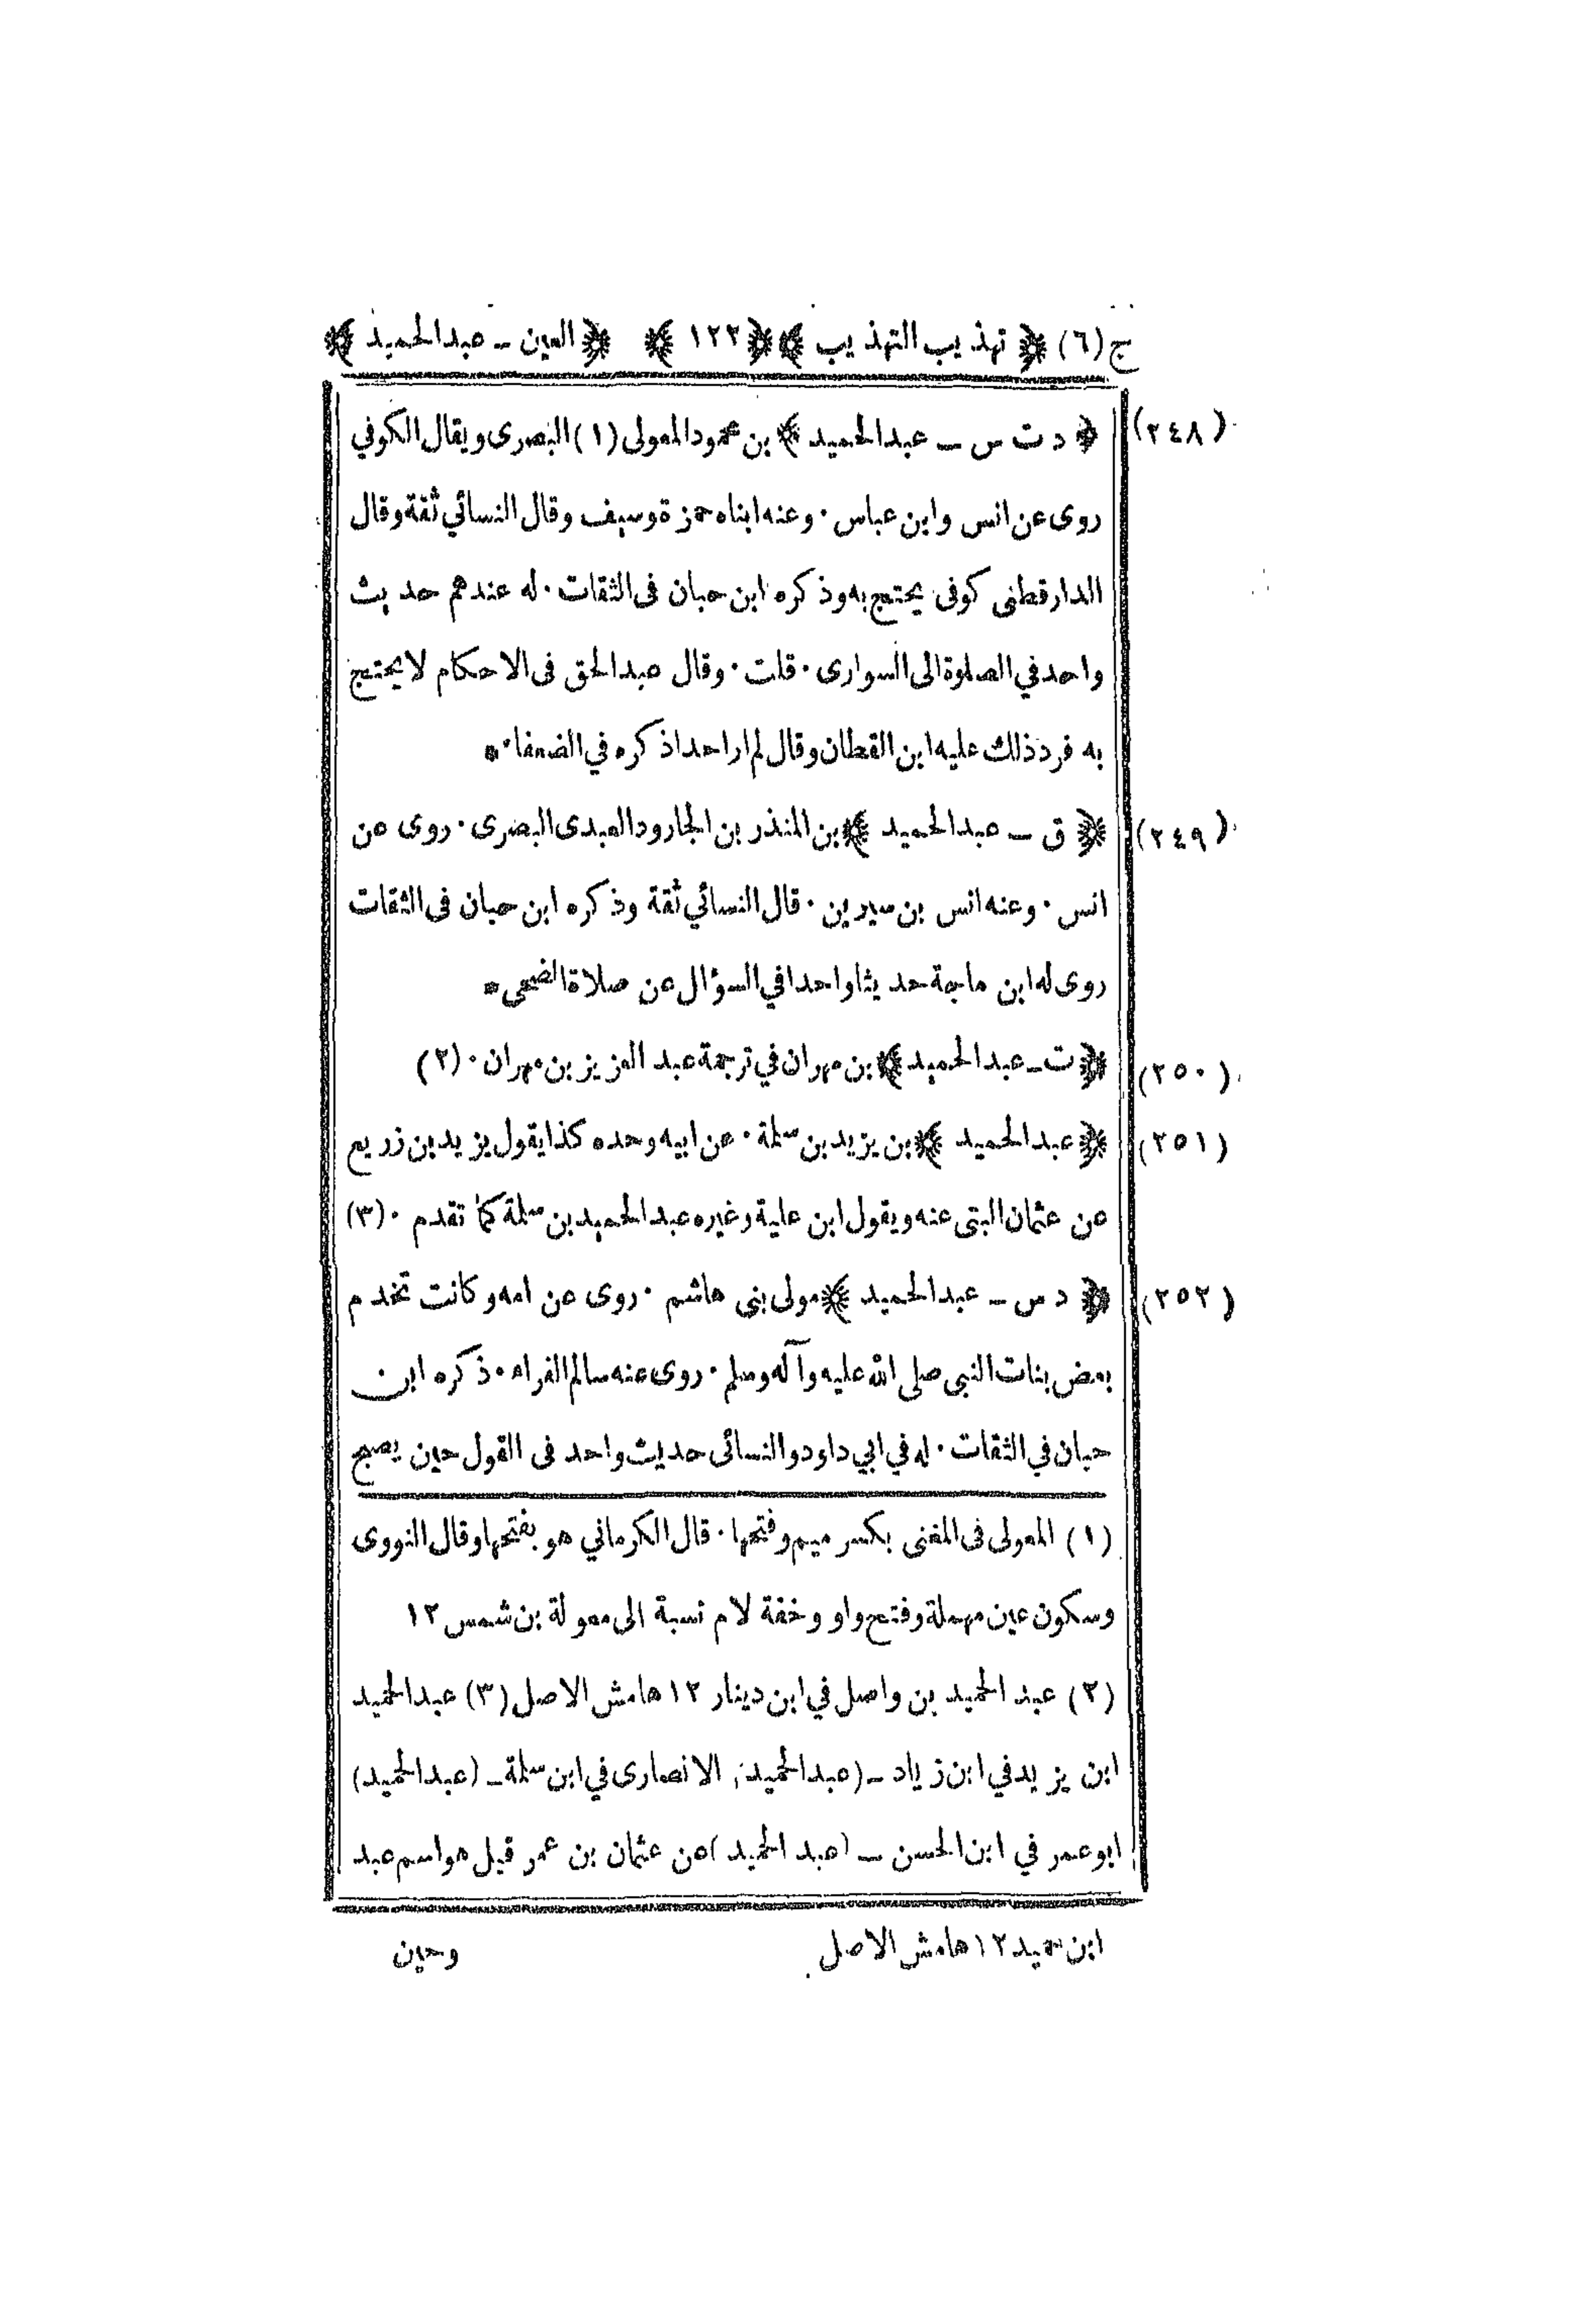 ج (٦) ﴿ تهذيب التهذيب ﴾ ﴿ ١٢٢ ﴾ ﴿ العين ـ عبدالحميد ﴾
(٢٤٨) ﴿ د ت س ـ عبدالحميد ﴾ بن محمود المعولى (١) البصرى ويقال الكوفي
روى عن انس وابن عباس . وعنه ابناه حمزة وسيف وقال النسائي ثقة وقال
الدارقطنى كوفى يحتج به وذكره ابن حبان فى الثقات . له عندهم حديث
واحد في الصلوة الى السوارى . قلت . وقال عبدالحق فى الاحكام لا يحتج
به فرد ذلك عليه ابن القطان وقال لم ار احدا ذكره في الضعفاء *
(٢٤٩) ﴿ ق ـ عبدالحميد ﴾ بن المنذر بن الجارود العبدى البصرى . روى عن
انس . وعنه انس بن سيرين . قال النسائي ثقة وذكره ابن حبان فى الثقات
روى له ابن ماجة حديثا واحدا في السؤال عن صلاة الضحى *
(٢٥٠) ﴿ ت ـ عبدالحميد ﴾ بن مهران في ترجمة عبد العزيز بن مهران . (٢)
(٢٥١) ﴿ عبدالحميد ﴾ بن يزيد بن سلمة . عن ابيه وحده كذا يقول يزيد بن زريع
عن عثمان البتى عنه ويقول ابن علية وغيره عبدالحميد بن سلمة كما تقدم . (٣)
(٢٥٢) ﴿ د س ـ عبدالحميد ﴾ مولى بنى هاشم . روى عن امه وكانت تخدم
بعض بنات النبي صلى الله عليه وآله وسلم . روى عنه سالم الفراء . ذكره ابن
حبان في الثقات . له في ابي داود والنسائى حديث واحد فى القول حين يصبح
(١) المعولى فى المغنى بكسر ميم وفتحها . قال الكرماني هو بفتحها وقال النووى
وسكون عين مهملة وفتح واو وخفة لام نسبة الى معولة بن شمس ١٢
(٢) عبد الحميد بن واصل في ابن دينار ١٢ هامش الاصل (٣) عبدالحميد
ابن يزيد في ابن زياد ـ (عبدالحميد) الانصارى في ابن سلمة ـ (عبدالحميد)
ابو عمر في ابن الحسن ـ (عبد الحميد) عن عثمان بن عمر قيل هو اسم عبد
ابن حميد ١٢ هامش الاصل
وحين